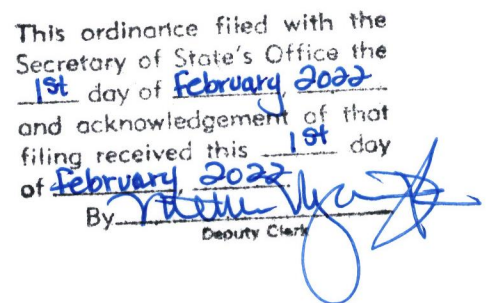 This ordinance filed with the
Secretary of State's Office the
1st day of February, 2022
and acknowledgement of that
filing received this 1st day
of February, 2022
By
Deputy Clerk